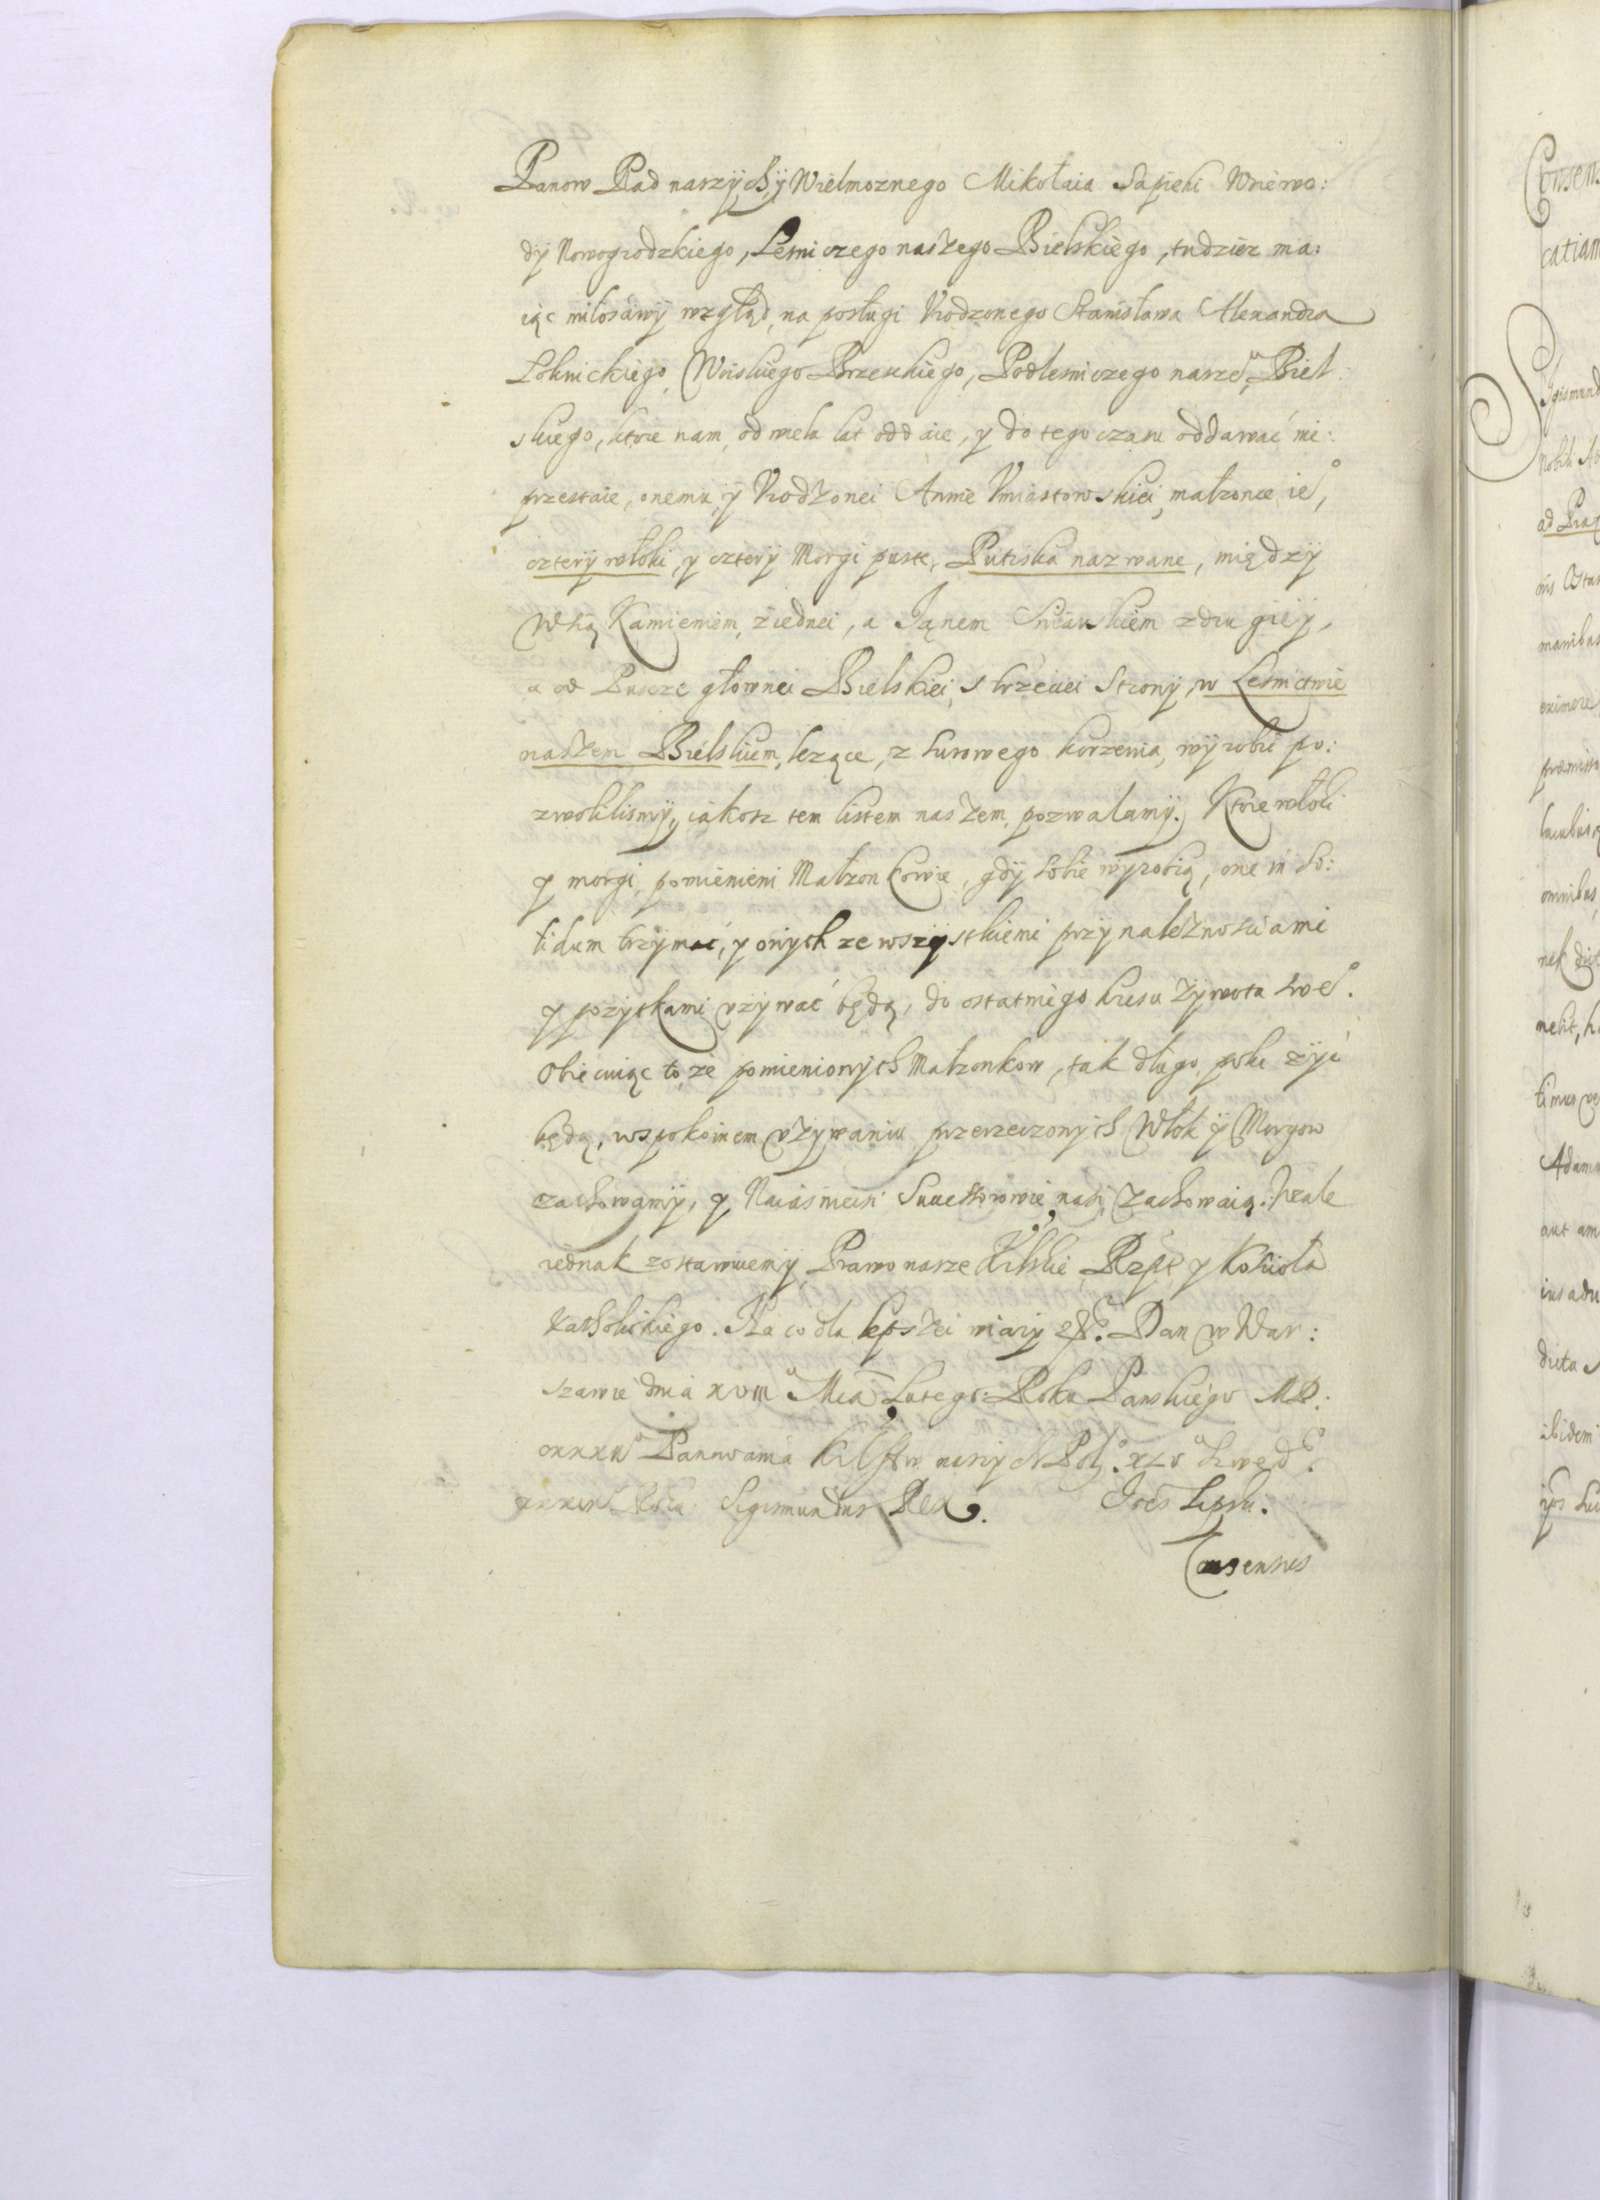 Panow Rad naszÿch, ÿ Wielmoznego Mikołaia Sapiehi Woiewo:
dÿ Nowogrodzkiego, Lesniczego naszego Bielskiego, tudziez ma:
iąc miłosciwÿ wzgłąd, na posługi Vrodzonego Stanisława Alexandra
Łoknickiego, Woiskiego Brzeskiego, Podlesniczego nasze°, Biel:
skiego, ktore nam, od wiela lat oddaie, y do tego czasu oddawać nie:
przestaie, onemu, ÿ Vrodzonei Annie Vmiastowskiei, małzonce ie°,
czterÿ włoki, y czterÿ Morgi puste, Putiska nazwane, międzÿ
Wsią Kamieniem, ziednei, a Janem zdrugieÿ,
a od Puscze głownei Bielskiei, s trzeciei Stronÿ, w Lesnictwie
naszem Bielskiem, lezące, z surowego korzenia, wÿrobic po:
zwolilismÿ, iakosz tem listem naszem, pozwalamÿ. Ktore włoki
y morgi, pomienieni Małzonkowie, gdÿ sobie wyrobią, one in so:
lidum trzÿmać, y onÿch ze wszÿstkiemi przÿnaleznosciami
y pozytkami vzÿwać będą, do ostatniego kresu zÿwota swe°.
Obiecuiąc to, ze pomienionÿch Małzonkow, tak długo, poki zÿć
będą, wspokoinem vzÿwaniu przerzeczonÿch Włok ÿ Morgow
zachowamÿ, y Naiasnieisi Successorowie nasi, zachowaią. Wcale
iednak zostawuiemÿ, Prawo nasze Kr̃lskie, Rzpt̃e y Kosciola
Katholickiego. Na co dla lepszei wiarÿ &c. Dan w War:
szawie dnia XVIII Mca Lutego: Roku Panskiego MD:
Panowania nasÿch Pol: XLV Szwed:
Roku Sigismundus Rex. Joes Lipski.
Consensus